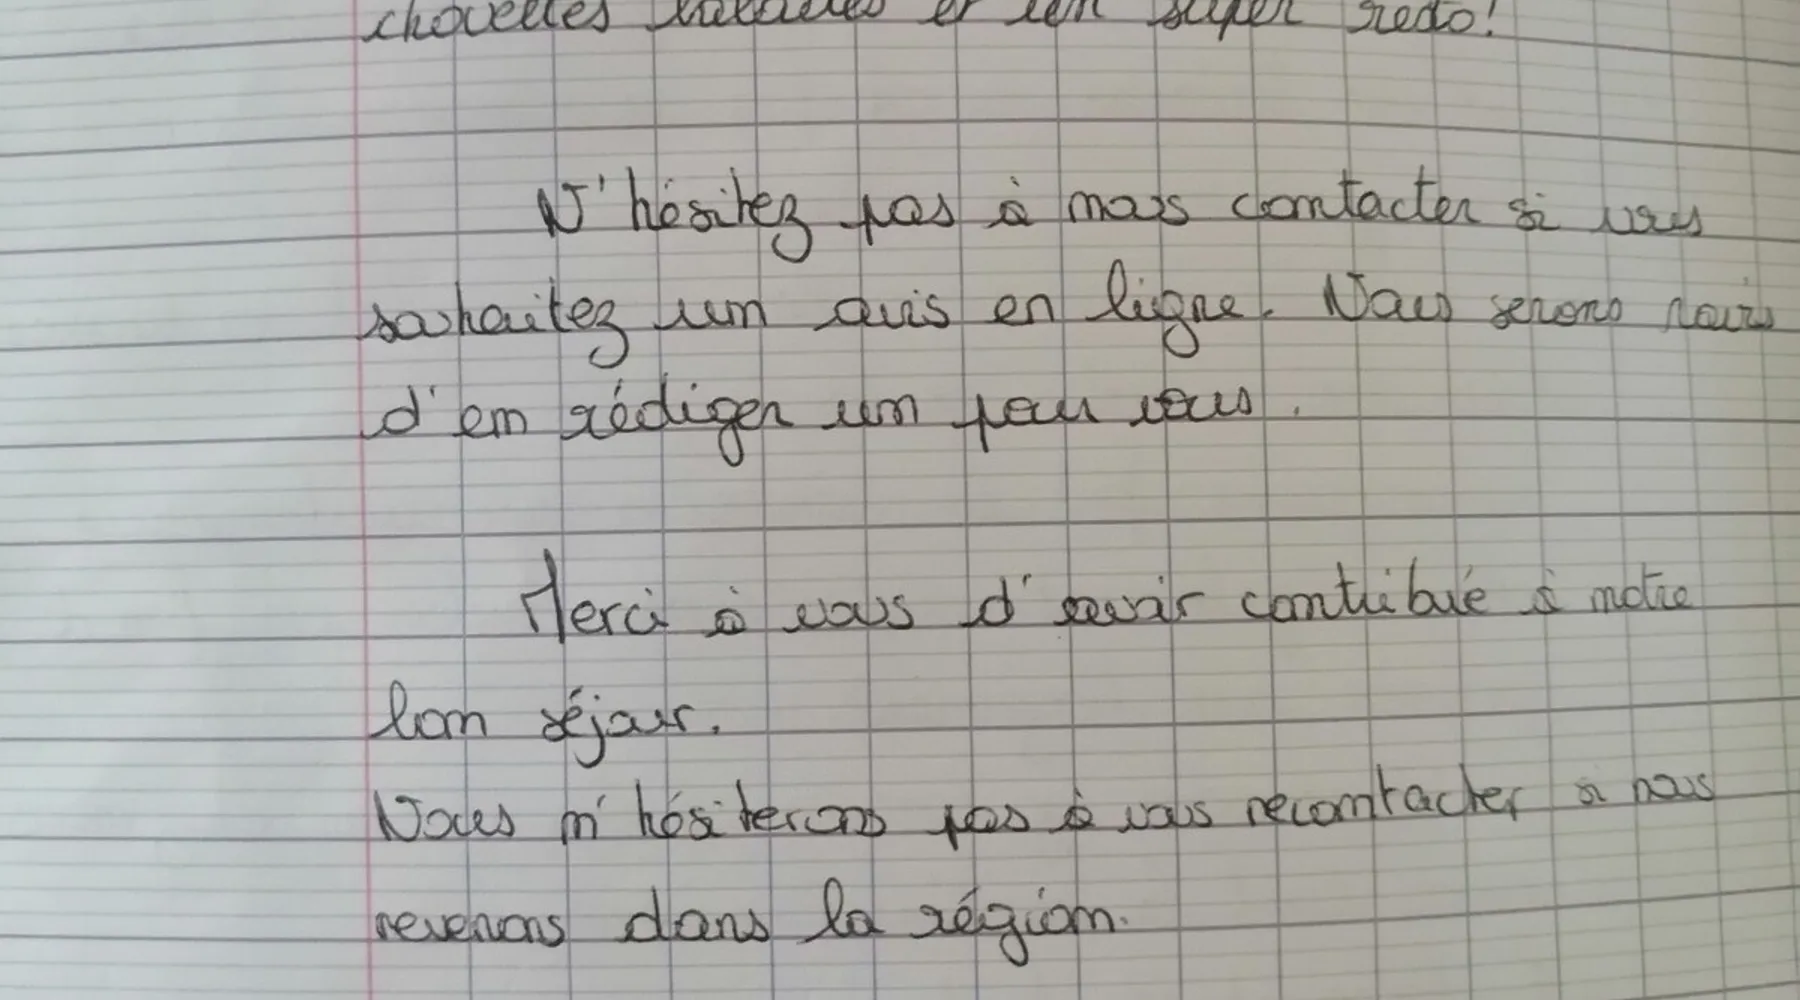 chouettes balades et un super resto!
N'hésitez pas à nous contacter si vous
souhaitez un avis en ligne. Nous serons ravis
d'en rédiger un pour vous.
Merci à vous d'avoir contribué à notre
bon séjour.
Nous n'hésiterons pas à vous recontacter si nous
revenons dans la région.